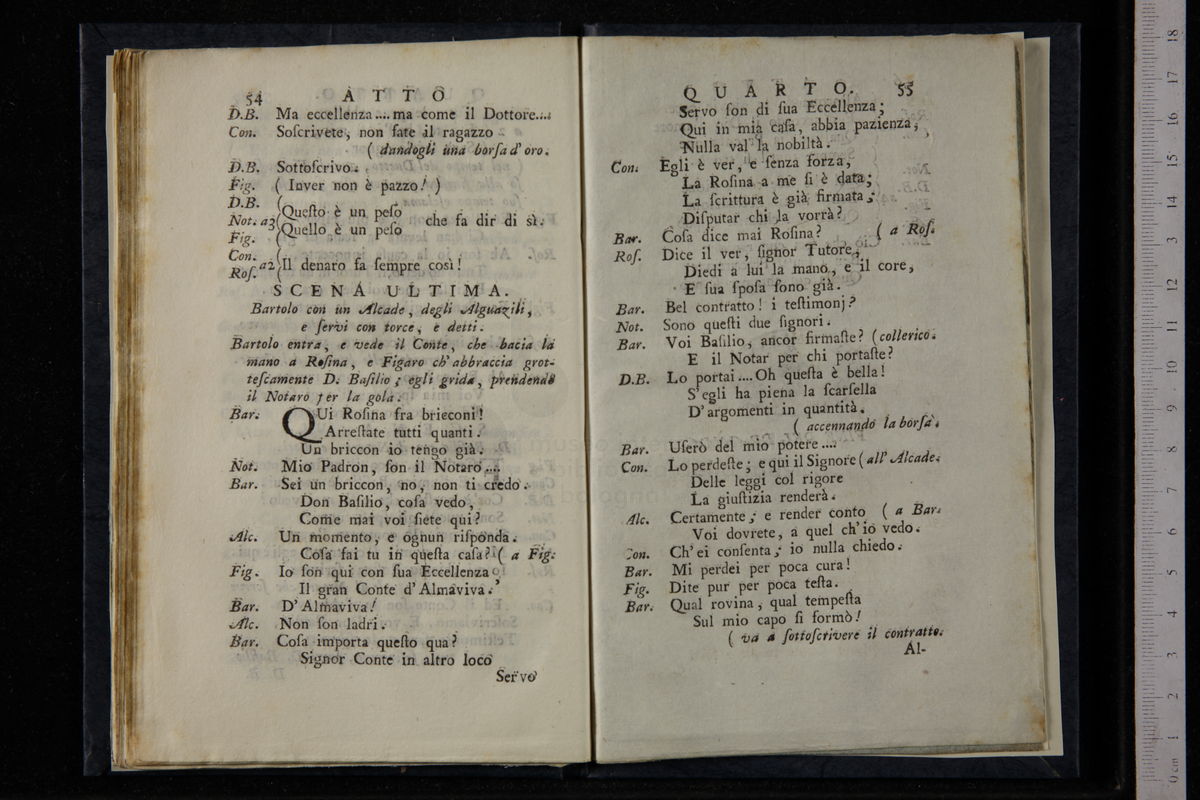 54 ATTO
D.B. Ma eccellenza.... ma come il Dottore....
Con. Soſcrivete, non fate il ragazzo
( dandogli una borſa d'oro.
D.B. Sottoſcrivo.
Fig. ( Inver non è pazzo! )
D.B. (
Not. a3 (Queſto è un peſo
(Quello è un peſo che fa dir di sì.
Fig. (
Con.
Roſ. a2 )Il denaro fa ſempre così!
SCENA ULTIMA.
Bartolo con un Alcade, degli Alguazili,
e ſervi con torce, e detti.
Bartolo entra, e vede il Conte, che bacia la
mano a Roſina, e Figaro ch'abbraccia grot-
teſcamente D. Baſilio; egli grida, prendendo
il Notaro per la gola.
Bar. QUi Roſina fra brieconi!
Arreſtate tutti quanti.
Un briccon io tengo già.
Not. Mio Padron, ſon il Notaro....
Bar. Sei un briccon, no, non ti credo.
Don Baſilio, coſa vedo,
Come mai voi ſiete qui?
Alc. Un momento, e ognun riſponda.
Coſa fai tu in queſta caſa? ( a Fig.
Fig. Io ſon qui con ſua Eccellenza
Il gran Conte d'Almaviva.
Bar. D'Almaviva!
Alc. Non ſon ladri.
Bar. Coſa importa queſto qua?
Signor Conte in altro loco
Servo
QUARTO. 55
Servo ſon di ſua Eccellenza;
Qui in mia caſa, abbia pazienza,
Nulla val la nobiltà.
Con. Egli è ver, e ſenza forza,
La Roſina a me ſi è data;
La ſcrittura è già firmata;
Diſputar chi la vorrà?
Bar. Coſa dice mai Roſina? ( a Roſ.
Roſ. Dice il ver, ſignor Tutore,
Diedi a lui la mano, e il core,
E ſua ſpoſa ſono già.
Bar. Bel contratto! i teſtimonj?
Not. Sono queſti due ſignori.
Bar. Voi Baſilio, ancor firmaſte? (collerico.
E il Notar per chi portaſte?
D.B. Lo portai.... Oh queſta è bella!
S'egli ha piena la ſcarſella
D'argomenti in quantità.
( accennando la borſa.
Bar. Uſerò del mio potere....
Con. Lo perdeſte; e qui il Signore (all' Alcade.
Delle leggi col rigore
La giuſtizia renderà.
Alc. Certamente; e render conto ( a Bar.
Voi dovrete, a quel ch'io vedo.
Con. Ch'ei conſenta; io nulla chiedo.
Bar. Mi perdei per poca cura!
Fig. Dite pur per poca teſta.
Bar. Qual rovina, qual tempeſta
Sul mio capo ſi formò!
( va a ſottoſcrivere il contratto.
Al-